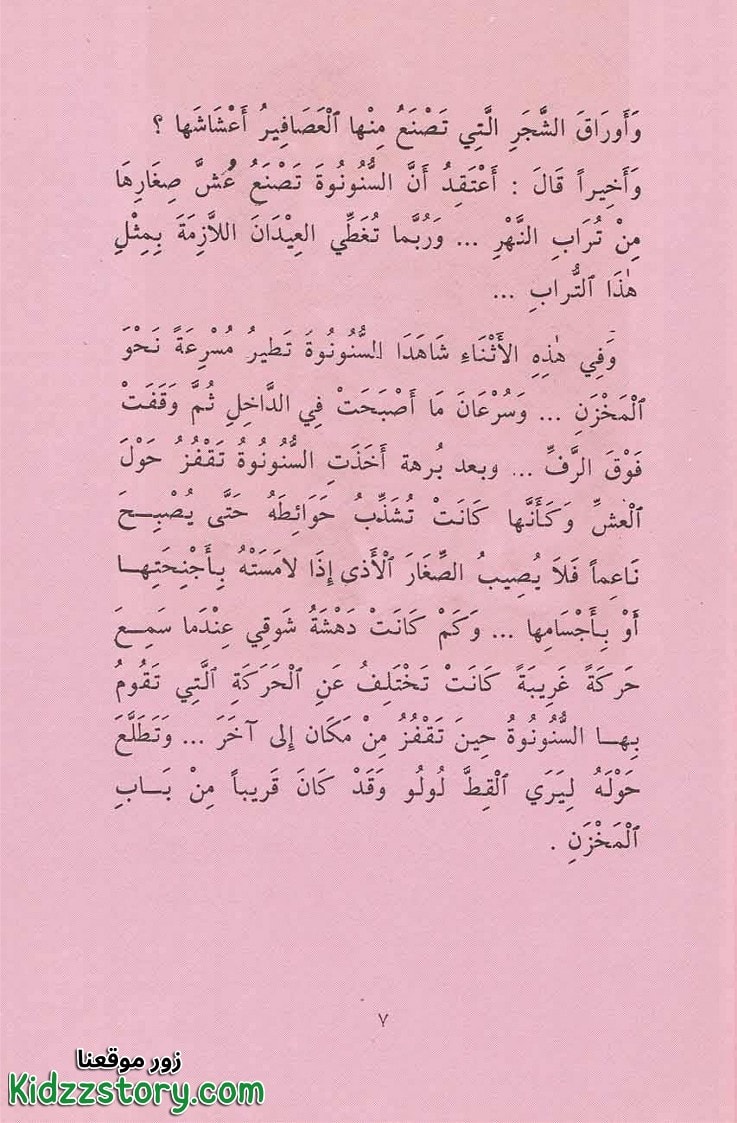 وَأَورَاقَ الشَّجَرِ الَّتِي تَصْنَعُ مِنْها ٱلْعَصَافِيرُ أَعْشَاشَها ؟
وَأَخِيراً قَالَ : أَعْتَقِدُ أَنَّ السُّنُونُوةَ تَصْنَعُ عُشَّ صِغَارِهَا
مِنْ تُرَابِ النَّهْرِ ... وَرُبَّما تُغَطِّي العِيْدَانَ اللاَّزِمَةَ بِمِثْلِ
هٰذَا ٱلتُّرابِ ...
وَفِي هٰذِهِ الأَثْنَاءِ شَاهَدَا السُّنُونُوةَ تَطيرُ مُسْرِعَةً نَحْوَ
ٱلْمَخْزَنِ ... وَسُرْعَانَ مَا أَصْبَحَتْ فِي الدَّاخِلِ ثُمَّ وَقَفَتْ
فَوْقَ الرَّفِّ ... وبعد بُرهة أَخَذَتِ السُّنُونُوةُ تَقْفُزُ حَوْلَ
ٱلْعشِّ وَكَأَنَّها كَانَتْ تُشَذِّبُ حَوَائِطَهُ حَتَّى يُصْبِـحَ
نَاعِماً فَلاَ يُصِيبُ الصِّغَارَ ٱلْأَذى إِذَا لامَسَتْهُ بِأَجْنِحَتِهـا
أَوْ بِأَجْسَامِها ... وَكَمْ كَانَتْ دَهْشَةُ شَوقِي عِنْدَما سَمِـعَ
حَركَةً غَرِيبَةً كَانَتْ تَخْتَلِفُ عَنِ ٱلْحَرَكَةِ ٱلَّتِي تَقُومُ
بِهـا السُّنُونُوةُ حِينَ تَقْفُزُ مِنْ مَكَان إِلى آخَرَ ... وَتَطَلَّعَ
حَوْلَهُ لِيَرَي ٱلْقِطَّ لُولُو وَقَدْ كَانَ قَرِيباً مِنْ بَـابِ
ٱلْمَخْزَنِ .
٧
زور موقعنا
Kidzzstory.com